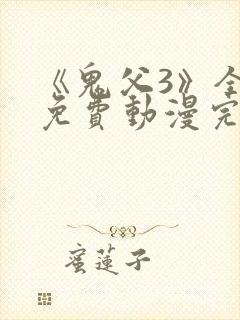 《鬼父3》全
免費動漫完
蜜蓮子